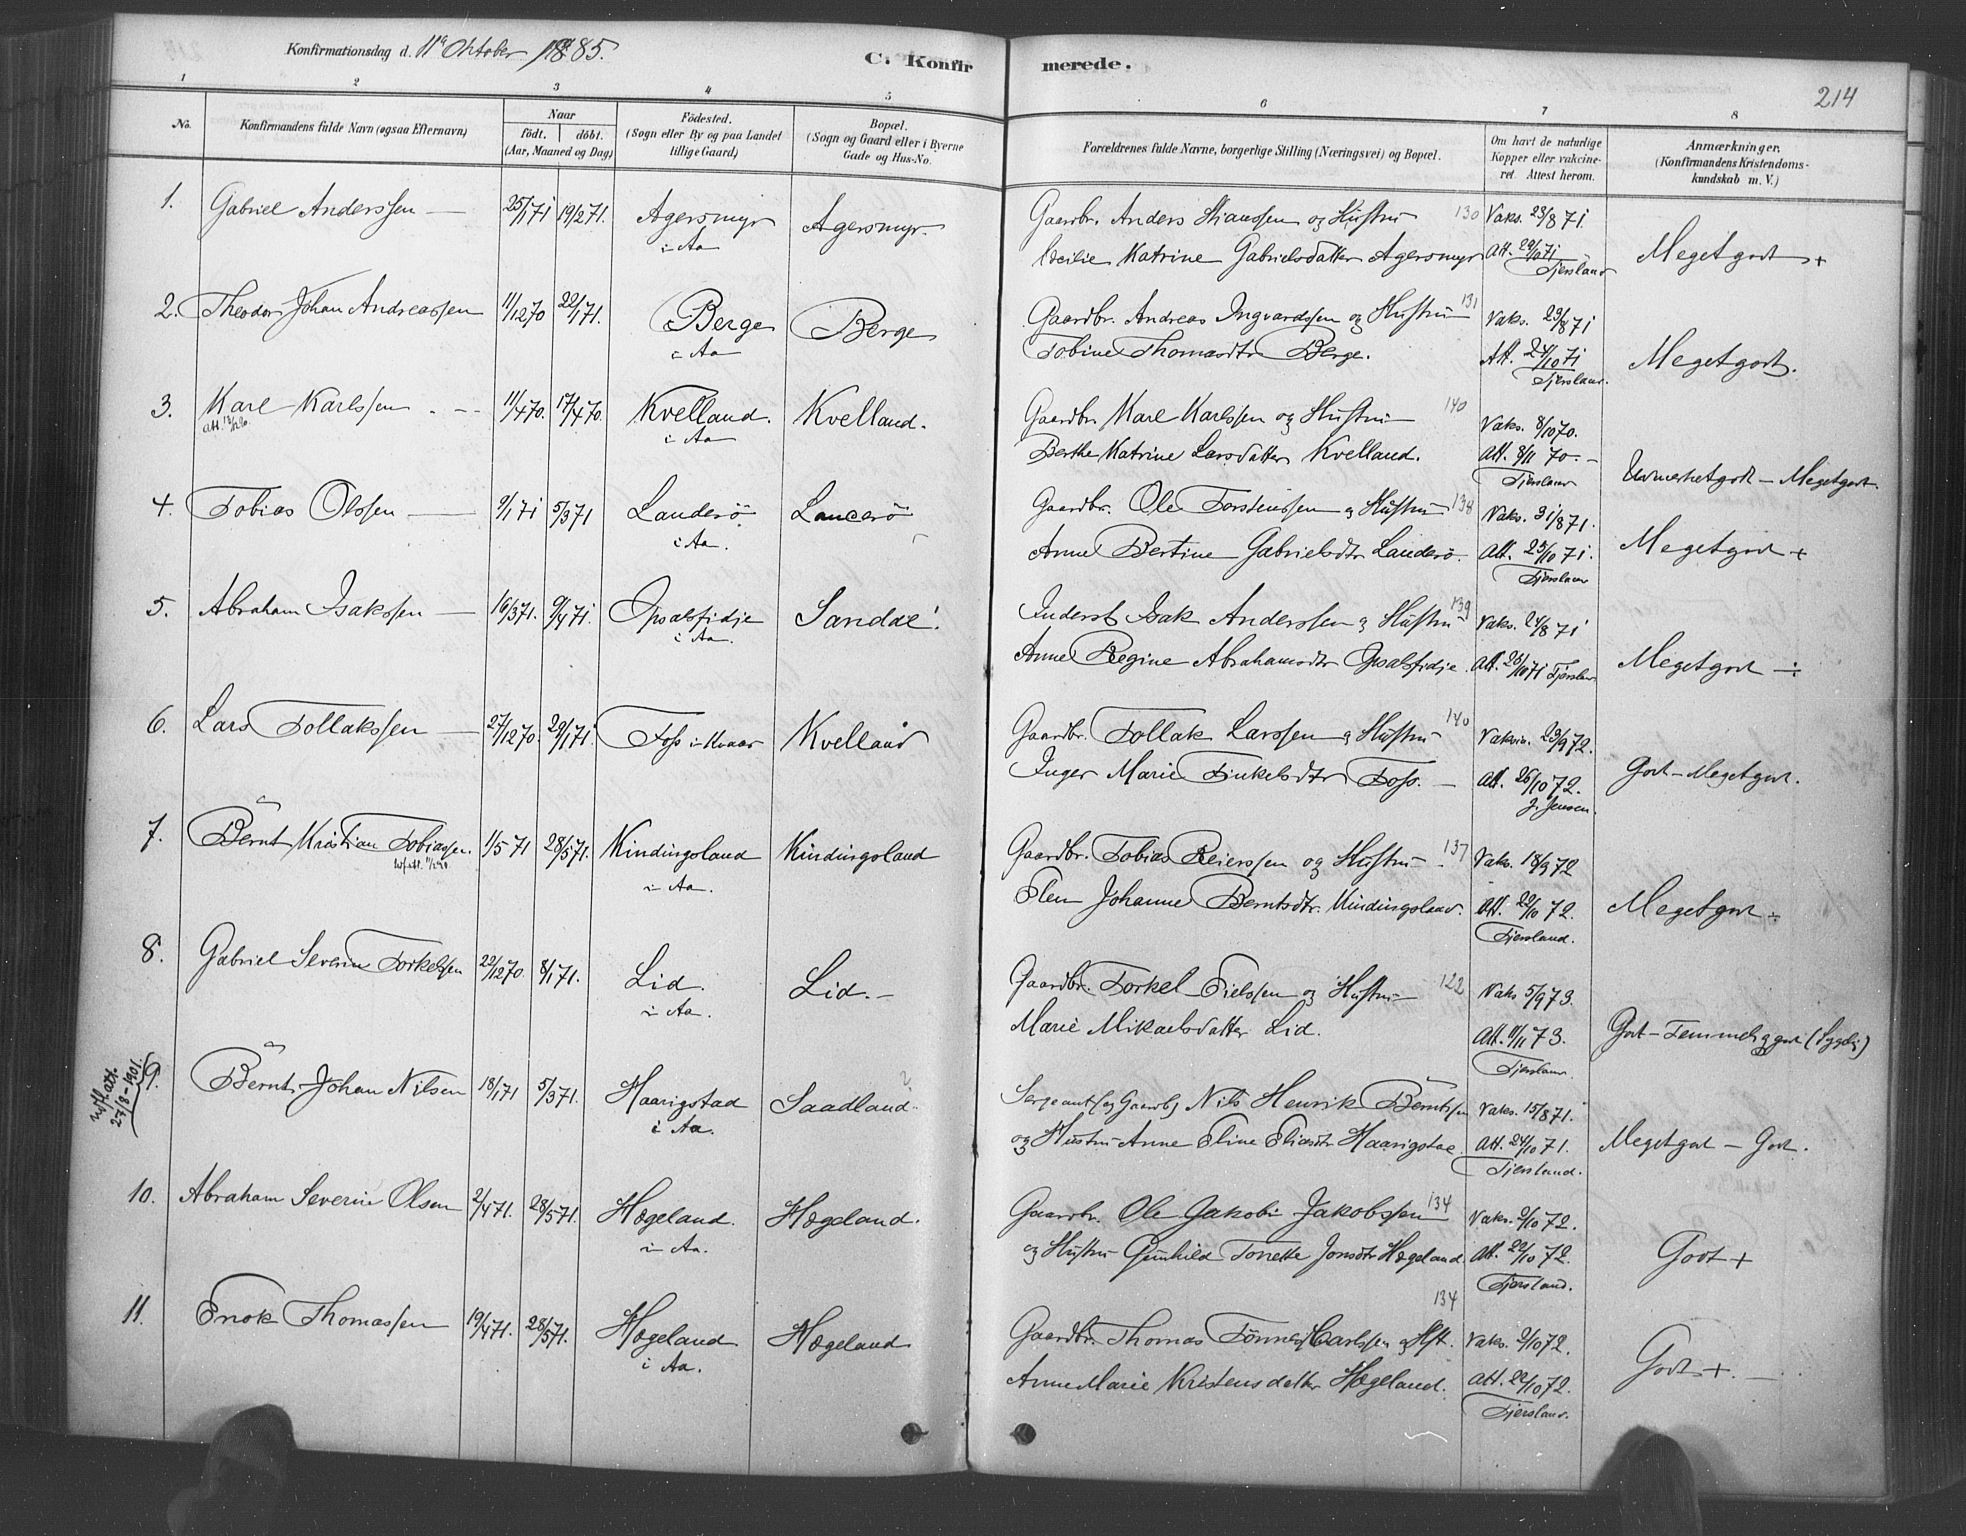 Konfirmationsdag d. 11te Oktober 1885.
C. Konfirmerede.
214
1 2 3 4 5 6 7 8
No.
Konfirmandens fulde Navn (ogsaa Efternavn)
Naar
födt. döbt.
(Aar, Maaned og Dag)
Födested.
(Sogn eller By og paa Landet
tillige Gaard)
Bopæl.
(Sogn og Gaard eller i Byerne
Gade og Hus-No.
Forældrenes fulde Navne, borgerlige Stilling (Næringsvei) og Bopæl.
Om havt de naturlige
Kopper eller vakcine-
ret. Attest herom.
Anmærkninger.
(Konfirmandens Kristendoms-
kundskab m. V.)
1. Gabriel Anderssen 25/1 71 19/2 71. Agersmyr Agersmyr. Gaardbr. Anders Hianssen og Hustru 130 Vaks. 23/8 71.
i Aa Cecilie Katrine Gabrielsdatter Agersmyr Att. 29/10 71 Meget godt +
Fjersland
2. Theodor Johan Andreassen 11/12 70 22/1 71. Berge Berge Gaardbr. Andreas Ingvardssen og Hustru 131 Vaks. 23/8 71
i Aa Tobine Thomasdtr Berge. Att. 24/10 71 Meget godt.
Fjersland.
3. Karl Karlssen 11/4 70. 17/4 70. Kvelland. Kvelland. Gaardbr Karl Karlssen og Hustru 140 Vaks. 8/10 70.
i Aa Berthe Katrine Larsdatter Kvelland. Att. 8/11 70.
Fjersland Udmerket godt - Meget godt
4. Tobias Olssen 9/1 71 5/3 71 Landerö Landerö Gaardbr. Ole Torstenssen og Hustru 138 Vaks. 31/8 71.
i Aa. Anne Bertine Gabrielsdtr Landerö. Att. 25/10 71. Meget godt +
Fjersland
5. Abraham Isakssen 16/3 71. 9/4 71. Opsalsfidje Sandae! Inderst Isak Anderssen og Hustru 139 Vaks. 24/8 71
i Aa. Anne Regine Abrahamsdtr Opsalsfidje. Att. 25/10 71 Fjersland Meget godt ÷
6. Lars Tollakssen 27/12 70. 29/1 71. Foss i Kvaas Kvelland Gaardbr. Tollak Larssen og Hustru 140 Vaksin. 23/9 72.
Inger Marie Tinkelsdtr Foss. Att. 26/10 72. Godt - Meget godt.
J. Jensen.
7. Bernt Kristian Tobiassen. 1/5 71 28/5 71. Kindingsland Kindingsland Gaardbr. Tobias Reierssen og Hustru 137 Vaks. 18/9 72
i Aa. Elen Johanne Berntsdtr. Kindingsland. Att. 29/10 72. Meget godt ÷
Fjersland.
8. Gabriel Severin Torkelssen 22/12 70. 8/1 71. Lid. Lid. Gaardbr. Torkel Eielssen og Hustru 122 Vaks 5/9 73.
i Aa. Marie Mikaelsdatter Lid. Att. 11/11 73. Godt - Temmelig godt (Sygelig)
Fjersland
9. Bernt Johan Nilsen 18/1 71 5/3 71. Haarigstad Saadland Sergeant (og Gaardbr) Nils Henrik Berntssen Vaks. 15/8 71.
27/8-1901. i Aa. og Hustru Anne Eline Eliasdtr Haarigstad. Att. 24/10 71. Meget godt - Godt.
Fjersland.
10. Abraham Severin Olsen 2/4 71. 28/5 71. Hægeland. Hægeland. Gaardbr. Ole Jakob Jakobssen 134 Vaks. 9/10 72.
i Aa. og Hustru Gunhild Tonette Jonsdtr Hægeland Att. 22/10 72. Godt +
Fjersland.
11. Enok Thomassen 19/4 71. 28/5 71. Hægeland Hægeland 134 Gaardbr. Thomas Tönnes Carlssen og Hst. Vaks. 9/10 72.
i Aa. Anne Marie Kristensdatter Hægeland. Att. 22/10 72. Godt +.
Fjersland.